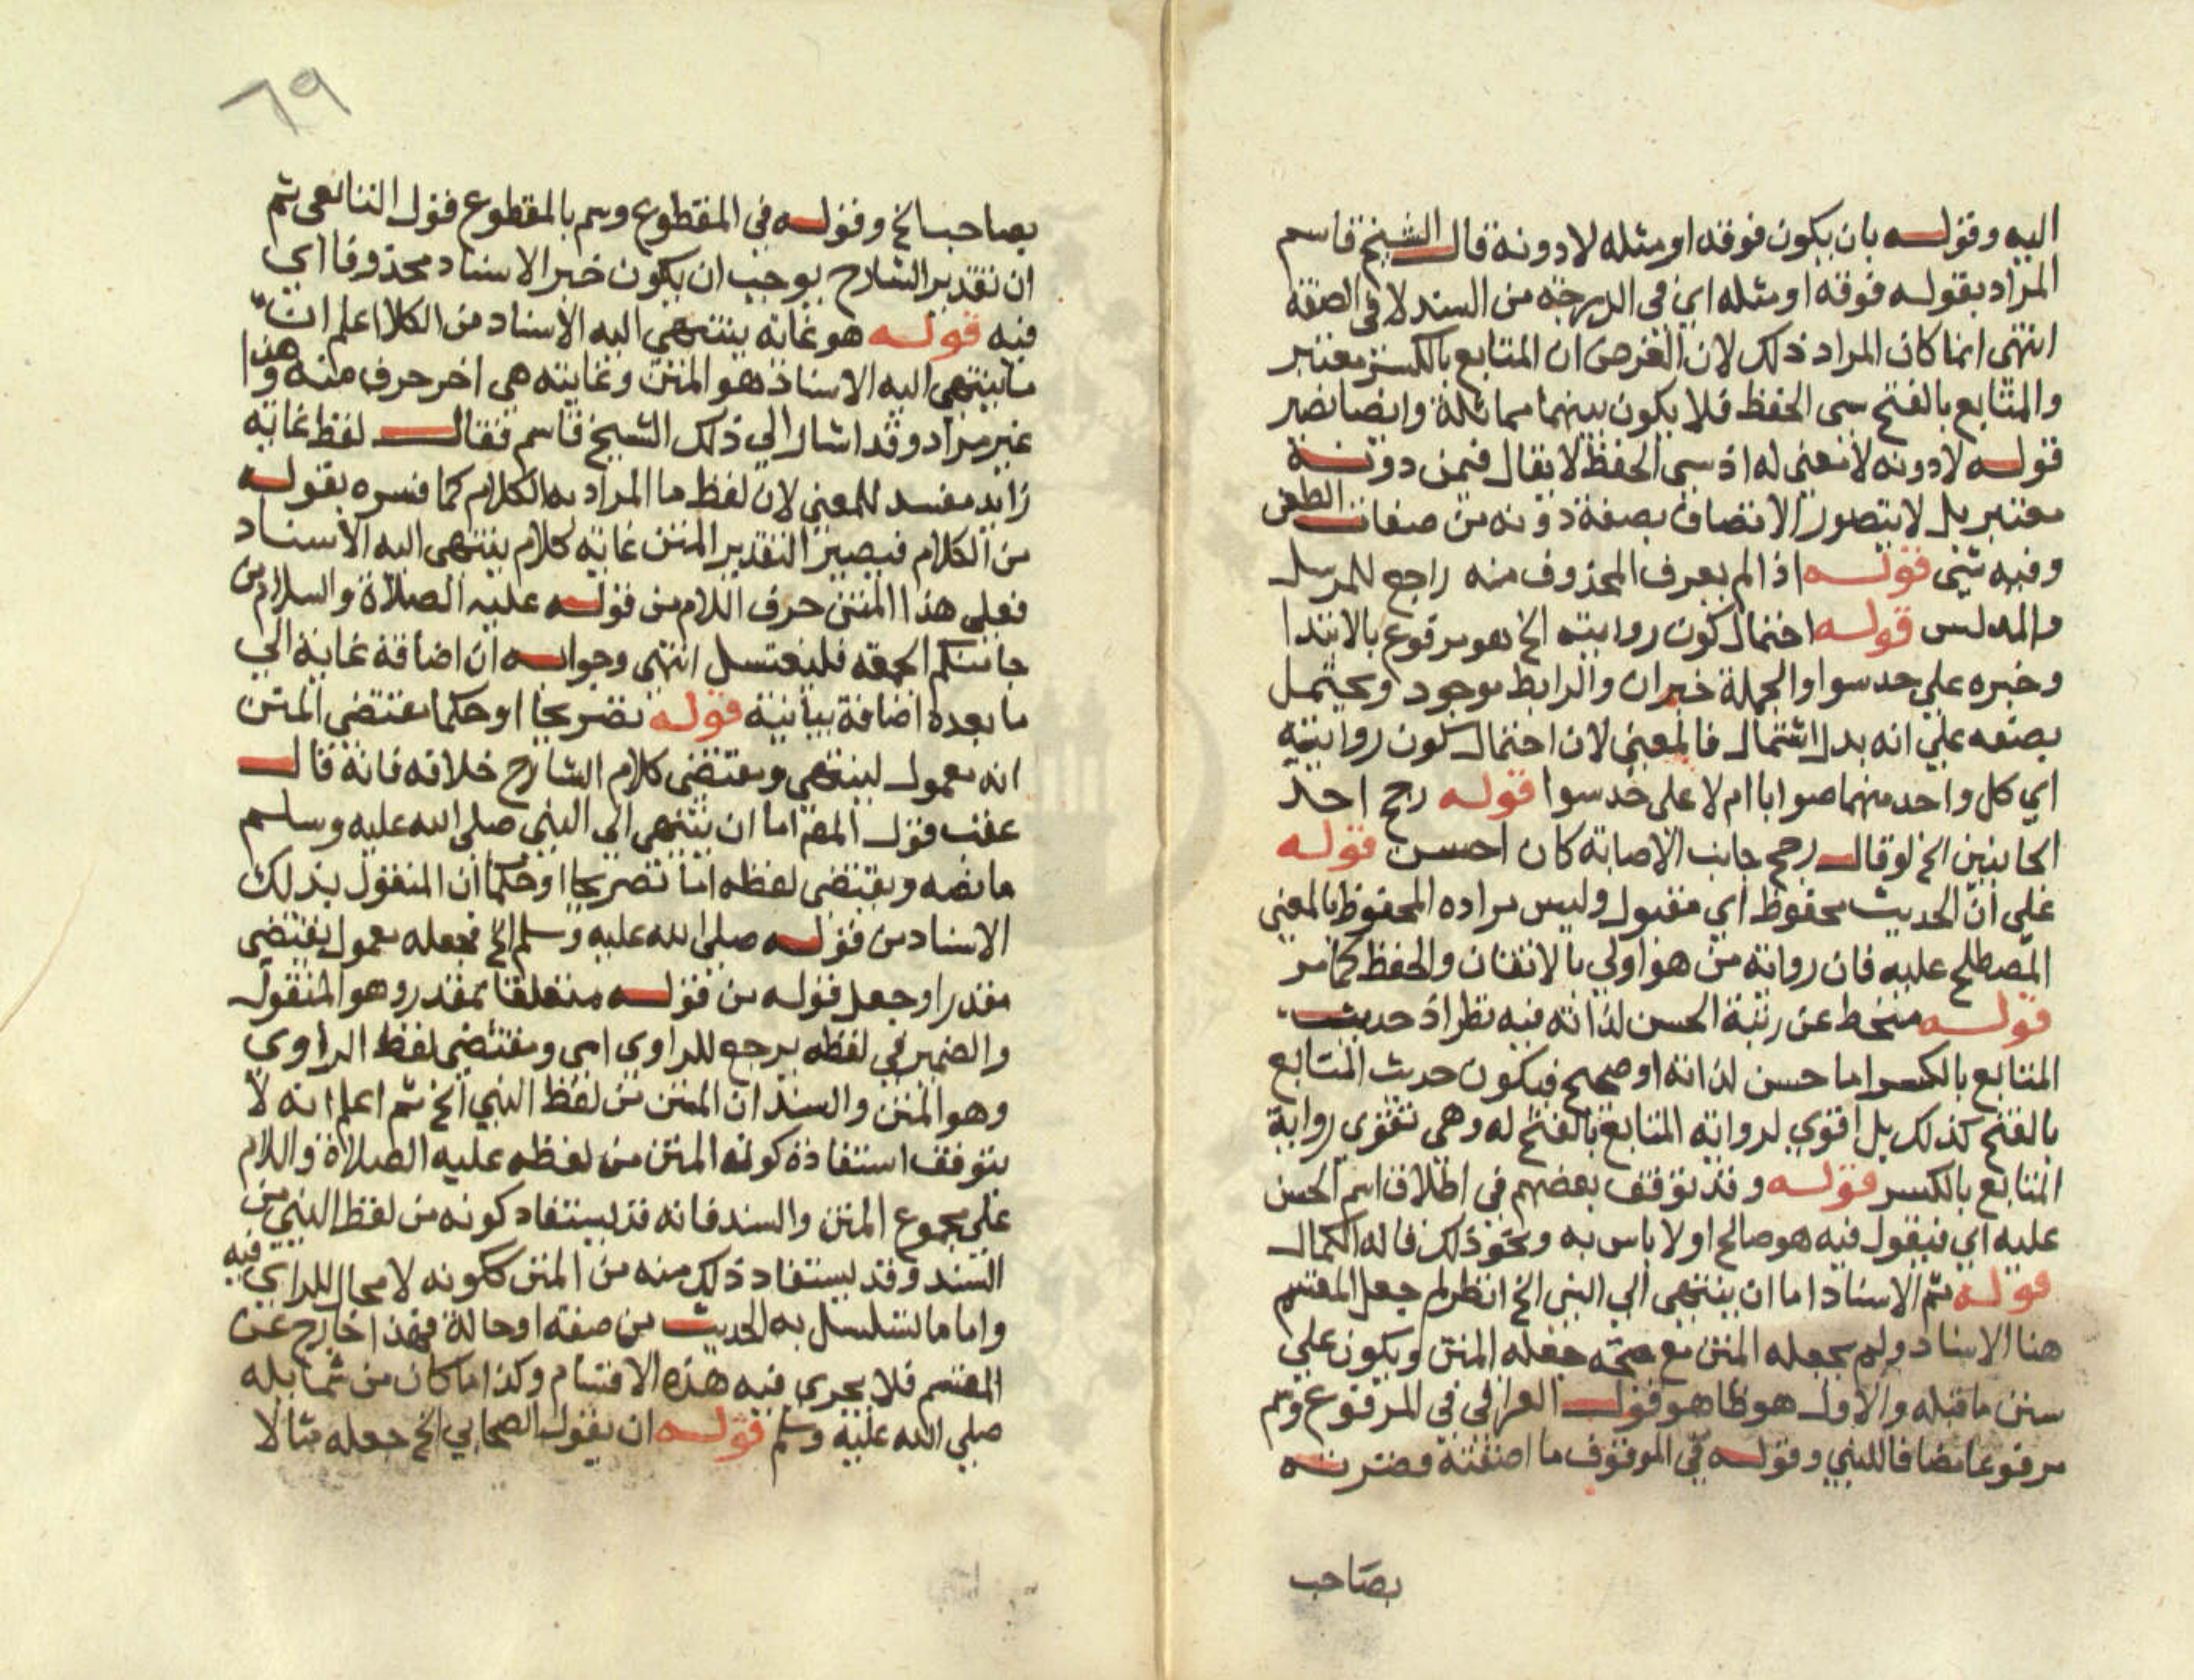 اليه وقوله بان يكون فوقه او مثله لا دونه قال الشيخ قاسم
المراد بقوله فوقه او مثله اي في الدرجة من السند لا في الصفة
انتهى انما كان المراد ذلك لان الغرض ان المتابع بالكسر معتبر
والمتابع بالفتح سى الحفظ فلا يكون بينهما مماثلة وايضا نصير
قوله لا دونه لا معنى له اذ سى الحفظ لا يقال فيمن دونه
معتبر بل لا يتصور الاتصاف بصفة دونه من صفات الطعن
وفيه شي قوله اذا لم يعرف المحذوف منه راجع للمرسل
والمدلس قوله احتمال كون روايته الخ هو مرفوع بالابتدا
وخبره على حد سوا والجملة خبر ان والرابط موجود ويحتمل
بصنعه علي انه بدل اشتمال فالمعني لان احتمال كون روايتيه
اي كل واحد منهما صوابا ام لا على حد سوا قوله رجح احد
الجانبين الخ لو قال رجح جانب الاصابة كان احسن قوله
على ان الحديث محفوظ اي مقبول وليس مراده المحفوظ بالمعني
المصطلح عليه فان رواته من هو اولي بالاتقان والحفظ كما مر
قوله منحط عن رتبة الحسن لذاته فيه نظر اذ حديث
المتابع بالكسر اما حسن لذاته او صحيح فيكون حديث المتابع
بالفتح كذلك بل اقوي لرواية المتابع بالفتح له وهي تقوي رواية
المتابع بالكسر قوله وقد توقف بعضهم في اطلاق اسم الحسن
عليه اي فيقول فيه هو صالح او لا باس به ونحو ذلك قاله الكمال
قوله ثم الاسناد اما ان ينتهى الي النبي الخ انظر لم جعل المقسم
هنا الاسناد ولم يجعله المتن مع صحة جعله المتن ويكون علي
سنن ما قبله والاول هو ظاهر قول العراقي في المرفوع وسم
مرفوعا مضافا للنبي وقوله في الموقوف ما اضفته وقصرته
بصاحب
٦٩
بصاحب الخ وقوله في المقطوع وسم بالمقطوع قول التابعى ثم
ان تقدير الشارح يوجب ان يكون خبر الاسناد محذوفا اي
فيه قوله هو غاية ينتهي اليه الاسناد من الكلام اعلم ان
ما ينتهى اليه الاسناد هو المتن وغايته هى اخر حرف منه وهذا
غير مراد وقد اشار الي ذلك الشيخ قاسم فقال لفظ غاية
زايد مفسد للمعني لان لفظ ما المراد به الكلام كما فسره بقوله
من الكلام فيصير التقدير المتن غاية كلام ينتهى اليه الاسناد
فعلي هذا المتن حرف اللام من قوله عليه الصلاة والسلام من
جا منكم الجمعة فليغتسل انتهى وجوابه ان اضافة غاية الي
ما بعده اضافة بيانية قوله تصريحا او حكما مقتضي المتن
انه معمول لينتهي ومقتضي كلام الشارح خلافه فانه قال
عقب قول المصـ اما ان ينتهى الي النبي صلى الله عليه وسلم
ما نصه ويقتضي لفظه اما تصريحا او حكما ان المنقول بذلك
الاسناد من قوله صلى الله عليه وسلم الخ فجعله معمول يقتضي
مقدرا وجعل قوله من قوله متعلقا بمقدر وهو المنقول
والضمير في لفظه يرجع للراوي اي ومقتضى لفظ الراوي
وهو المتن والسند ان المتن من لفظ النبي الخ ثم اعلم انه لا
يتوقف استفادة كونه المتن من لفظه عليه الصلاة واللام
علي مجموع المتن والسند فانه قد يستفاد كونه من لفظ النبي من
السند وقد يستفاد ذلك منه من المتن ككونه لا مجال للراي فيه
واما ما تسلسل به الحديث من صفة او حالة فهذا خارج عن
المقسم فلا يجري فيه هذه الاقسام وكذا ما كان من شمايله
صلي الله عليه وسلم قوله ان يقول الصحابي الخ جعله مثالا